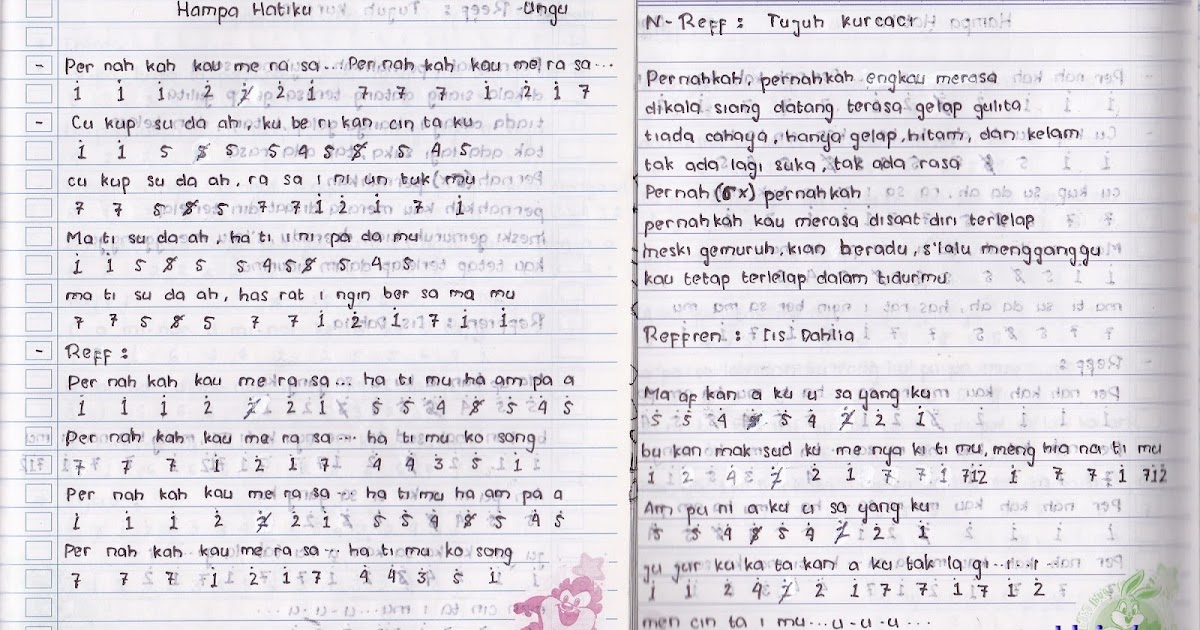 Hampa Hatiku - Ungu
- Per nah kah kau me ra sa... Per nah kah kau me ra sa...
1 1 1 2 2 2 1 7 7 7 1 2 1 7
- Cu kup su da ah, ku be ri kan cin ta ku
1 1 5 5 5 5 4 5 5 5 4 5
cu kup su da ah, ra sa i ni un tuk mu
7 7 5 5 5 7 7 1 2 1 7 1
Ma ti su da ah, ha ti i ni pa da mu
1 1 5 5 5 5 4 5 5 5 4 5
ma ti su da ah, has rat i ngin ber sa ma mu
7 7 5 5 5 7 7 1 2 1 7 1 1
- Reff :
Per nah kah kau me ra sa... ha ti mu ha am pa a
1 1 1 2 2 2 1 5 5 4 5 5 4 5
Per nah kah kau me ra sa... ha ti mu ko song
7 7 7 1 2 1 7 4 4 3 5 1
Per nah kah kau me ra sa... ha ti mu ha am pa a
1 1 1 2 2 2 1 5 5 4 5 5 4 5
Per nah kah kau me ra sa... ha ti mu ko song
7 7 7 1 2 1 7 4 4 3 5 1
N-Reff : Tujuh kurcaci
Pernahkah, pernahkah engkau merasa
dikala siang datang terasa gelap gulita
tiada cahaya, hanya gelap, hitam, dan kelam
tak ada lagi suka, tak ada rasa
Pernah (5x) pernahkah
pernahkah kau merasa disaat diri terlelap
meski gemuruh kian beradu, s'lalu mengganggu
kau tetap terlelap dalam tidurmu
Reffren : Iis Dahlia
Ma ap kan a ku u sa yang ku
5 5 4 5 5 4 2 1 2 1
bu kan mak sud ku me nya ki ti mu, meng hia na ti mu
1 2 4 2 2 1 7 7 1 712 1 7 7 1 712
Am pu ni a ku u sa yang ku
5 5 4 5 5 4 2 1 2 1
ju jur ku ka ta kan a ku tak la gi...i...i...
1 1 2 4 2 2 1 7 7 1 7 1 2
men cin ta i mu...u-u-u...